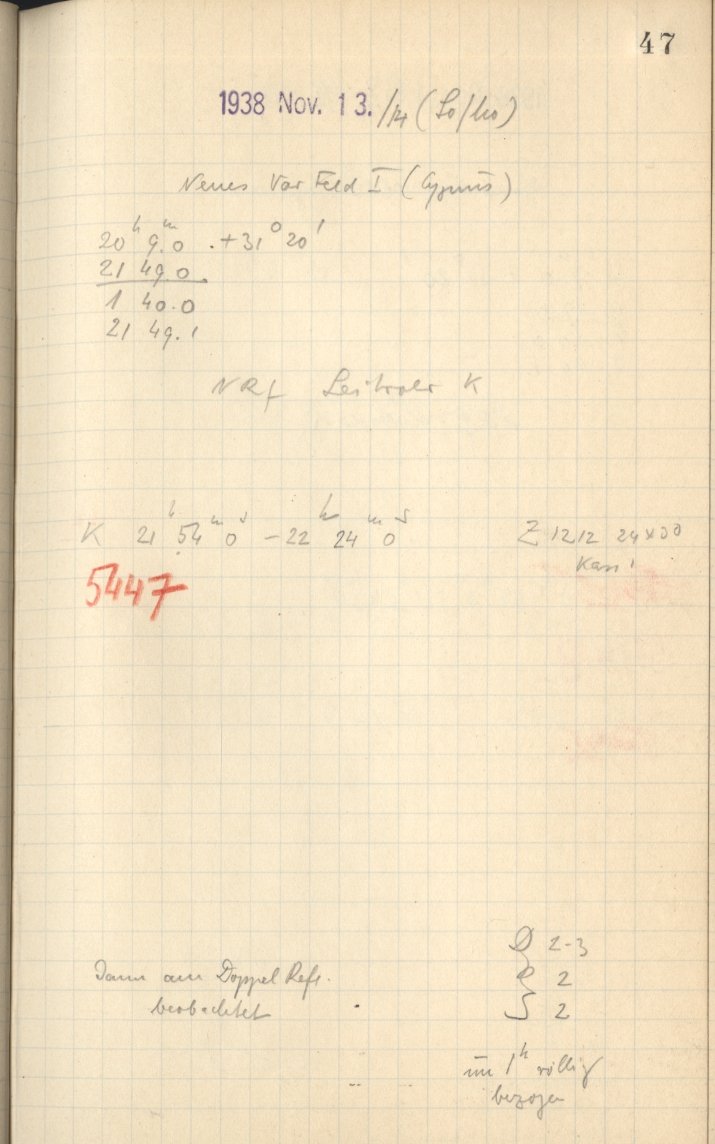 47
1938 Nov. 13./14 (So/Mo)
Neues Var Feld I (Cygnus)
20ʰ 9.ᵐ0 . +31° 20'
21 49.0
1 40.0
21 49.1
NRf Leitrohr K
K 21ʰ 54ᵐ 0ˢ – 22ʰ 24ᵐ 0ˢ Z 1212 24x30
Kass 1
5447
2-3
Dann am Doppel Refr. 2
beobachtet 2
um 1ʰ völlig
bezogen